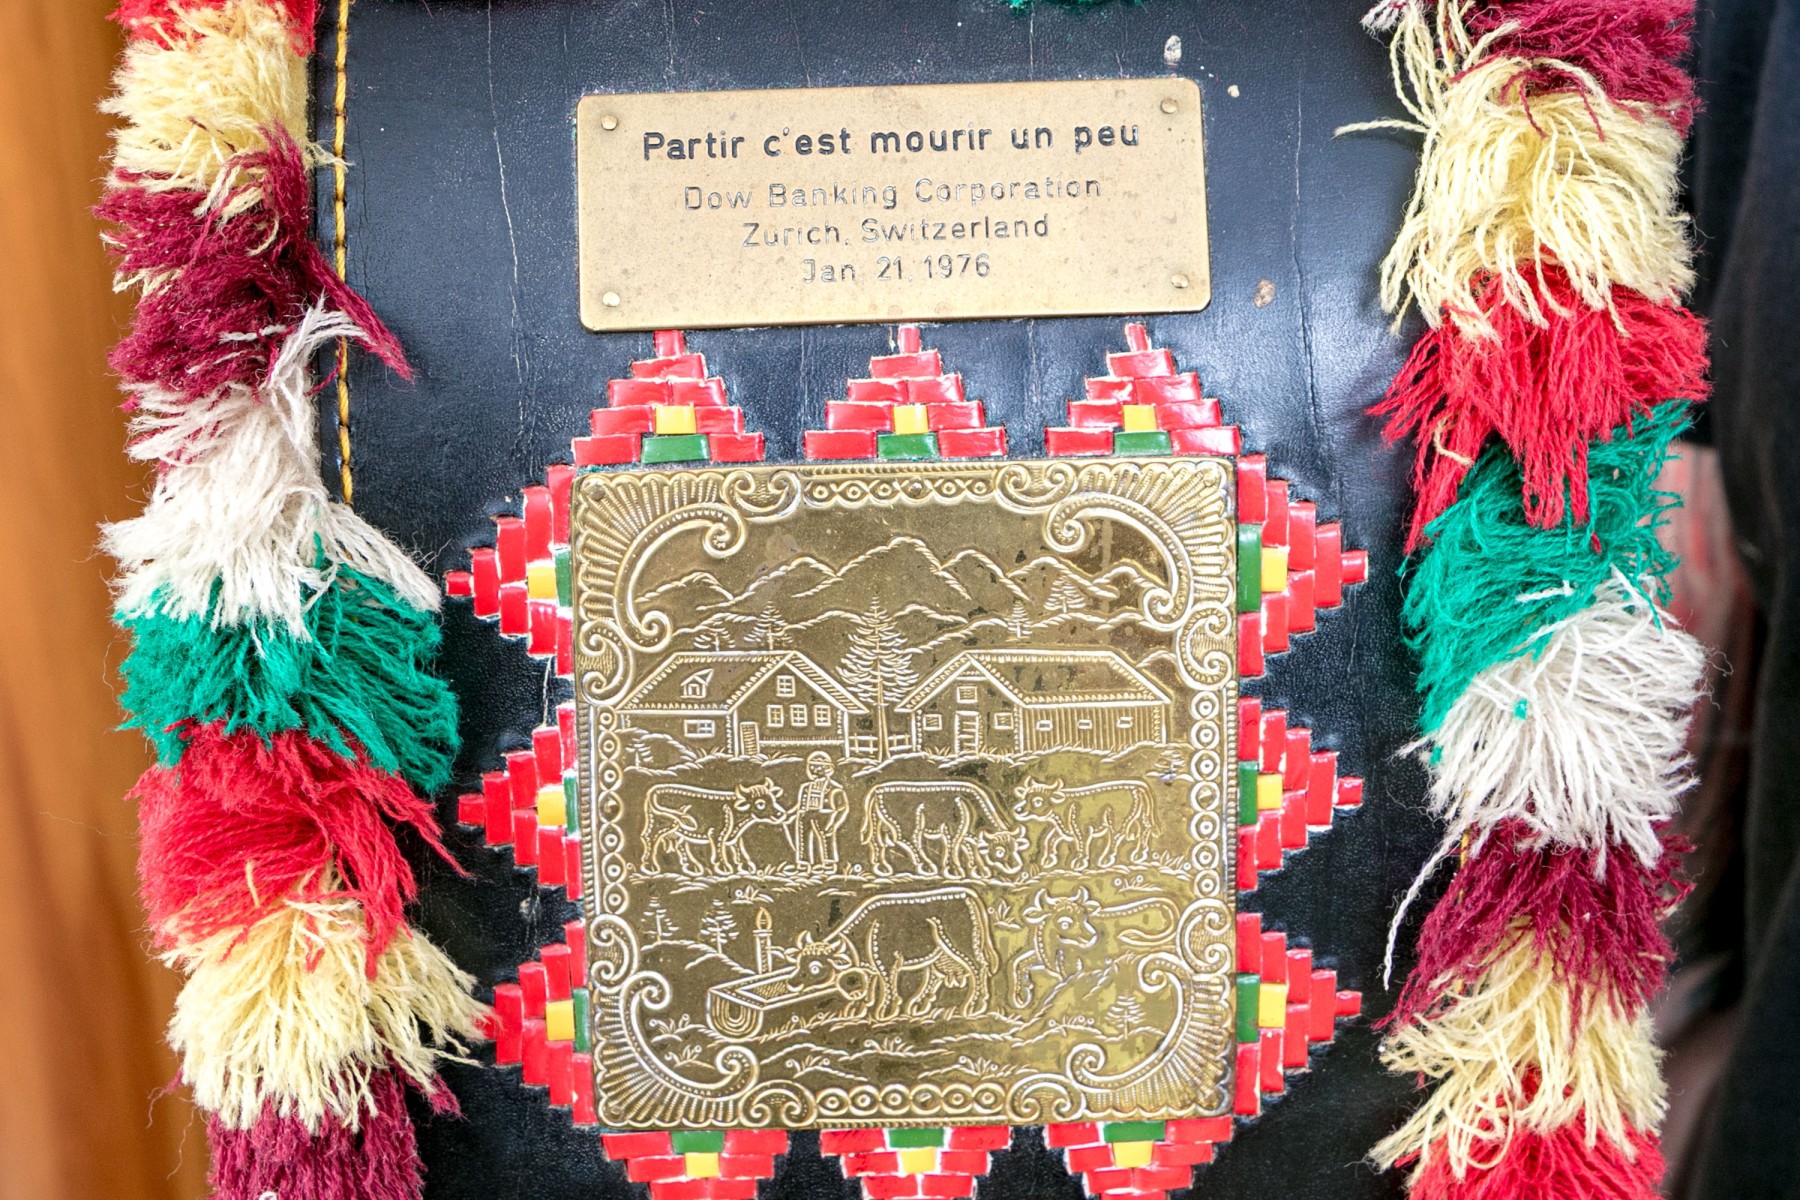 Partir c'est mourir un peu
Dow Banking Corporation
Zurich, Switzerland
Jan. 21, 1976